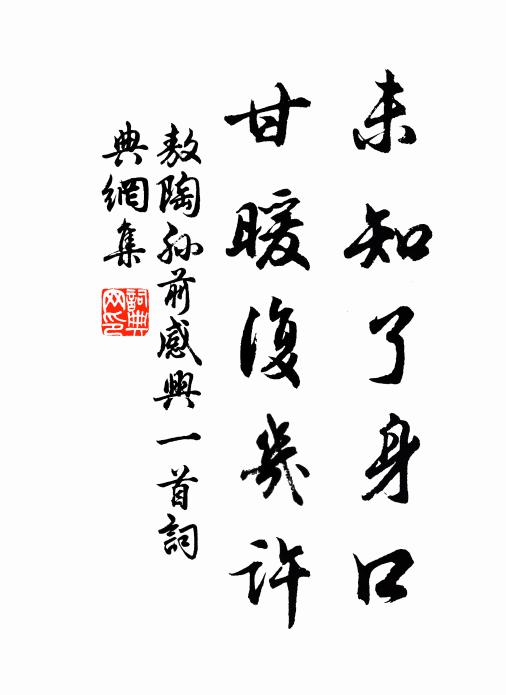 未知了身口
甘暖復幾許
敖陶孫前感興一首詞
典網集
詞典網印